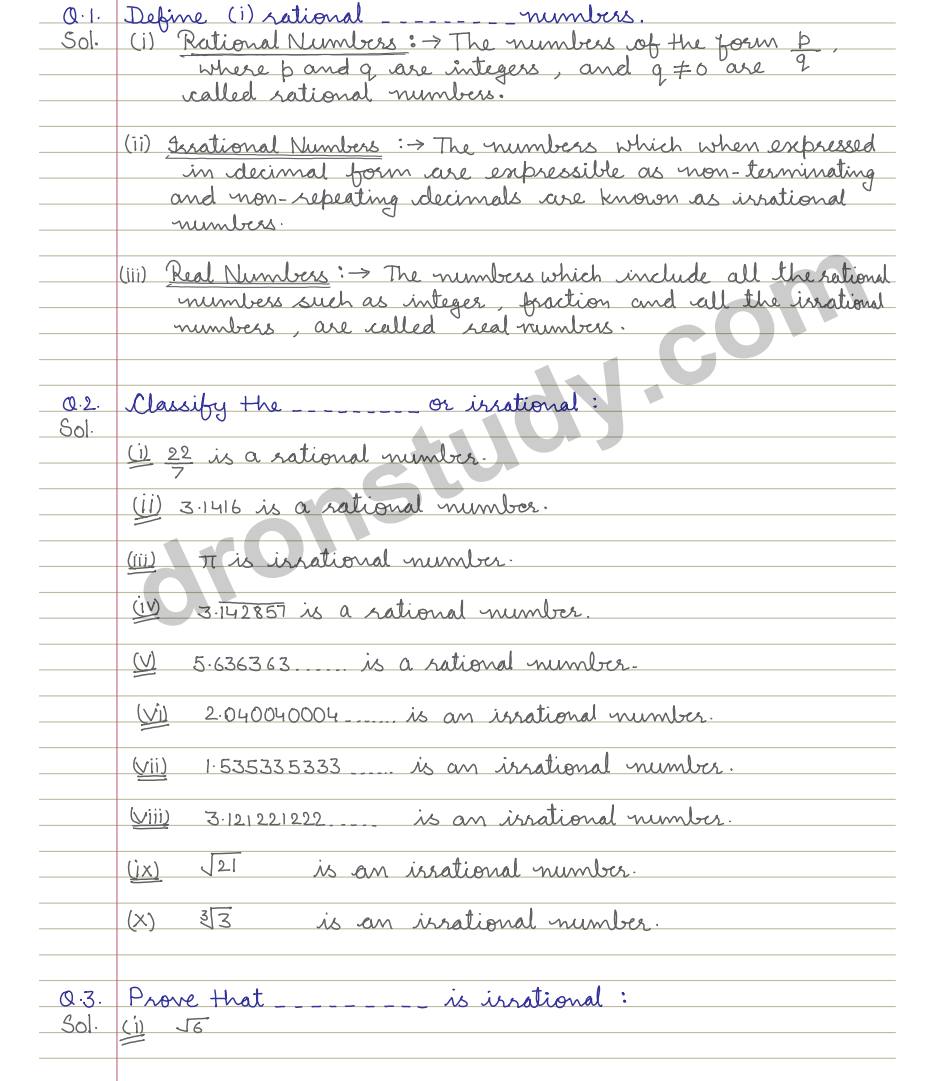 Q.1. Define (i) rational _ _ _ _ _ _ _ _ _ numbers.
Sol. (i) Rational Numbers :→ The numbers of the form p/q,
where p and q are integers, and q ≠ 0 are
called rational numbers.
(ii) Irrational Numbers :→ The numbers which when expressed
in decimal form are expressible as non-terminating
and non-repeating decimals are known as irrational
numbers.
(iii) Real Numbers :→ The numbers which include all the rational
numbers such as integer, fraction and all the irrational
numbers, are called real numbers.
Q.2. Classify the _ _ _ _ _ _ _ _ _ or irrational :
Sol.
(i) 22/7 is a rational number.
(ii) 3.1416 is a rational number.
(iii) π is irrational number.
(iv) 3.1̅4̅2̅8̅5̅7̅ is a rational number.
(v) 5.636363...... is a rational number.
(vi) 2.040040004....... is an irrational number.
(vii) 1.535335333...... is an irrational number.
(viii) 3.121221222..... is an irrational number.
(ix) √21 is an irrational number.
(x) ∛3 is an irrational number.
Q.3. Prove that _ _ _ _ _ _ _ _ _ is irrational :
Sol. (i) √6
dronstudy.com